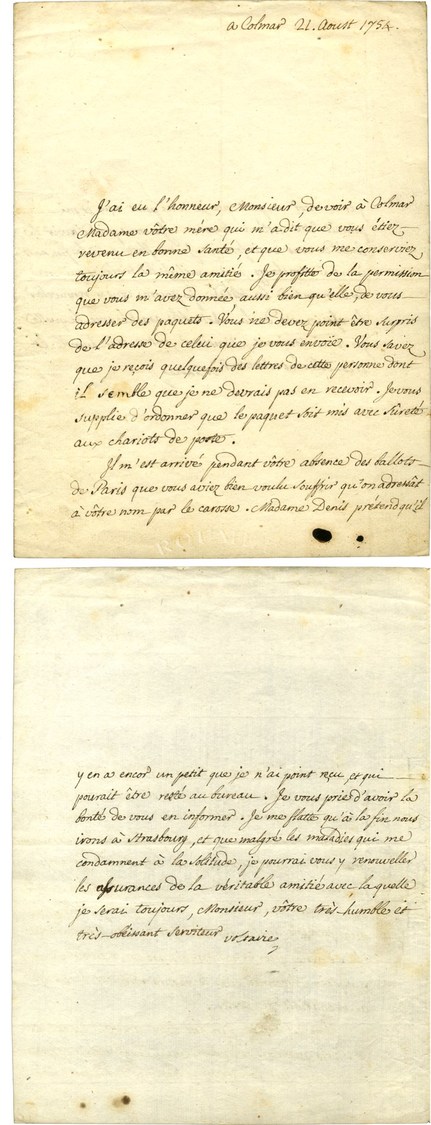 a Colmar 21. Aoust 1754.
J'ai eu l'honneur, Monsieur, de voir à Colmar
Madame vôtre mére qui m'a dit que vous étiez
revenu en bonne santé, et que vous me conserviez
toujours la même amitié. Je profitte de la permission
que vous m'avez donnée, aussi bien qu'elle, de vous
adresser des paquets. Vous ne devez point être surpris
de l'adresse de celui que je vous envoie. Vous savez
que je reçois quelquefois des lettres de cette personne dont
il semble que je ne devrais pas en recevoir. Je vous
supplie d'ordonner que le paquet soit mis avec sûreté
aux chariots de poste.
Il m'est arrivé pendant vôtre absence des ballots
de Paris que vous aviez bien voulu souffrir qu'on adressât
à vôtre nom par le carosse. Madame Denis prétend qu'il
y en a encor un petit que je n'ai point reçu, et qui
pourait être resté au bureau. Je vous prie d'avoir la
bonté de vous en informer. Je me flatte qu'à la fin nous
irons à Strasbourg, et que malgré les maladies qui me
condamnent à la solitude, je pourrai vous y renouveller
les assurances de la véritable amitié avec laquelle
je serai toujours, Monsieur, vôtre très-humble et
très-obéissant serviteur voltaire